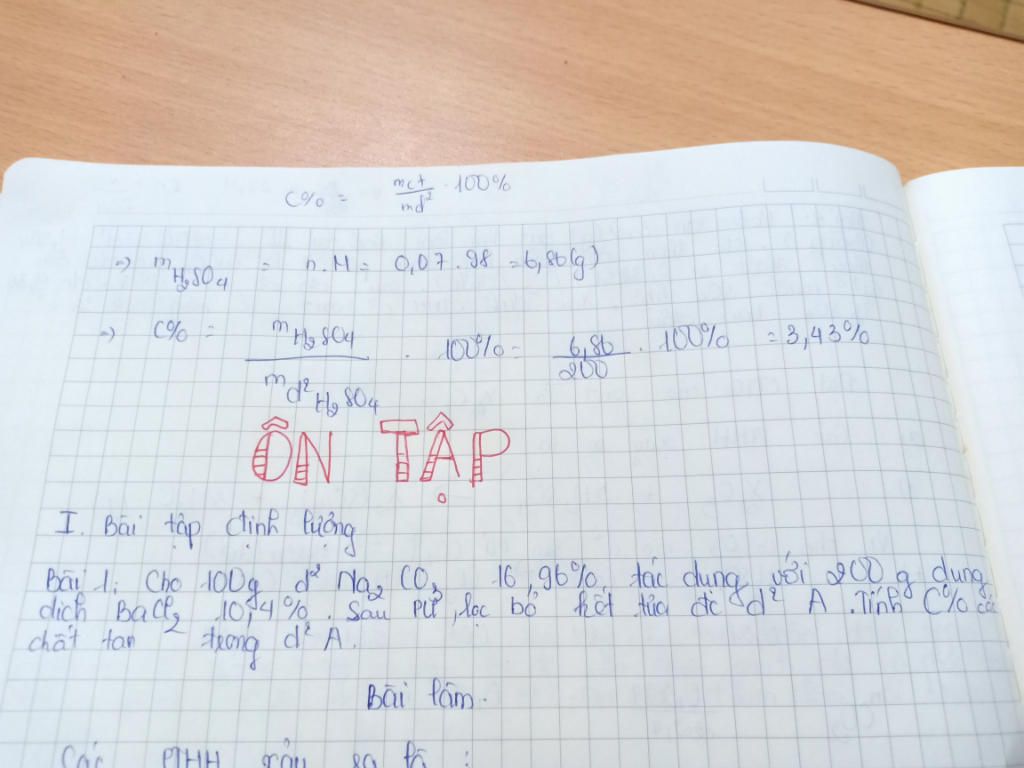 C% = mct/md² . 100%
=> mH₂SO₄ = n.M = 0,07 . 98 = 6,86(g)
=> C% = mH₂SO₄/md²H₂SO₄ . 100% = 6,86/200 . 100% = 3,43%
ÔN TẬP
I. Bài tập định lượng
Bài 1: Cho 100g d² Na₂CO₃ 16,96% tác dụng với 200g dung
dịch BaCl₂ 10,4%. Sau PƯ, lọc bỏ kết tủa đc d² A. Tính C% các
chất tan trong d² A.
Bài làm.
Các PTHH xảy ra là :